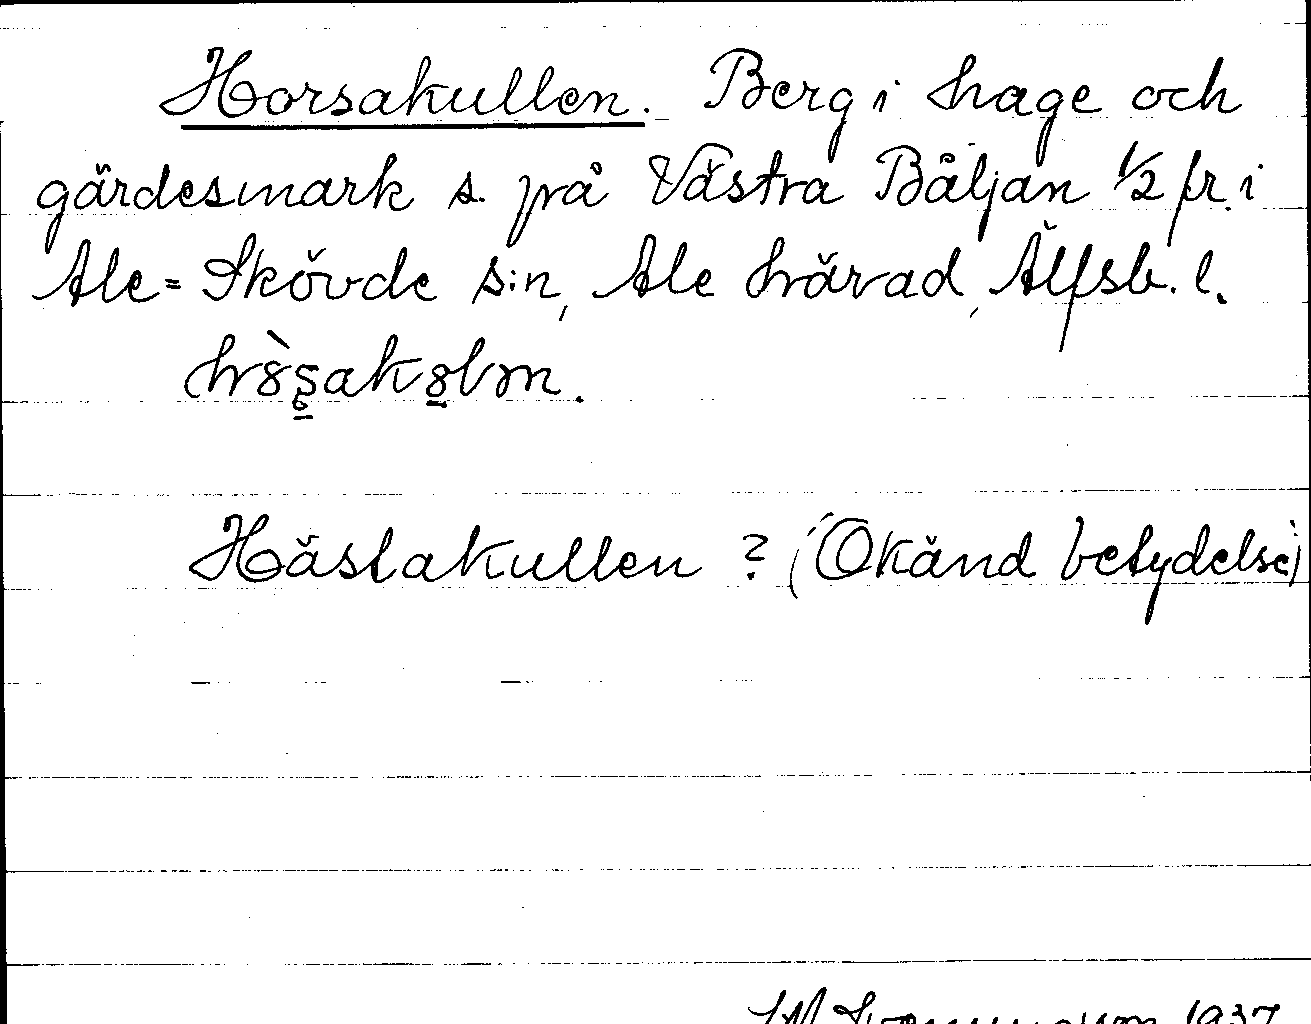 Horsakullen. Berg i hage och
gärdesmark s. på Västra Båljan 1/2 fr. i
Ale=Skövde s:n, Ale härad, Älfsb. l.
Hästakullen ? ("Okänd betydelse")
1937